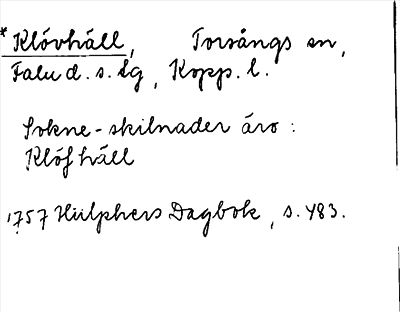 * Klövhäll, Torsångs sn,
Falu d. s. lg, Kopp. l.
Sokne-skilnader äro:
Klöfhäll
1757 Hülphers Dagbok, s. 483.